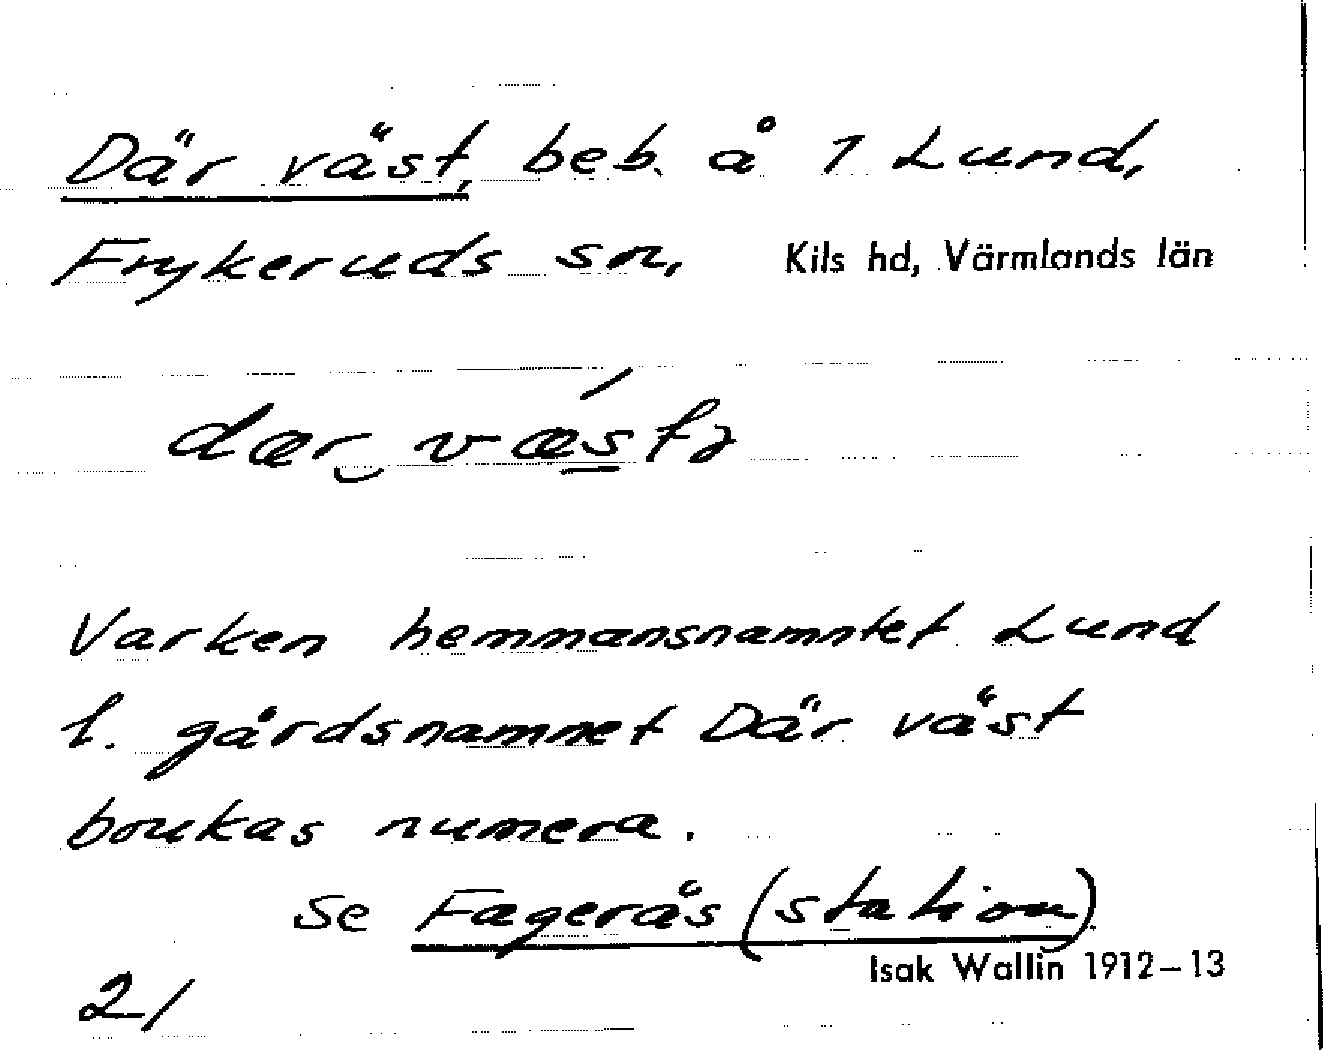 Där väst, beb. å 1 Lund,
Frykeruds sn, Kils hd, Värmlands län
dær vǽstə
Varken hemmansnamntet Lund
l. gårdsnamnet Där väst
brukas numera.
Se Fagerås (station)
Isak Wallin 1912–13
2/